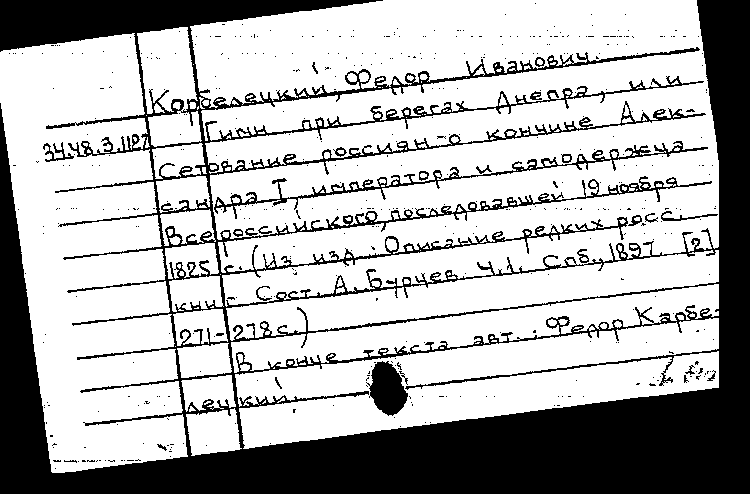 Корбелецкий, Федор Иванович.
34.48.3.1127
Гимн при берегах Днепра, или
Сетование россиян о кончине Алек-
сандра I, императора и самодержца
Всероссийского, последовавшей 19 ноября
1825 г. (Из изд.: Описание редких росс.
книг. Сост. А. Бурцев. Ч.1. Спб., 1897. [2]
271-278 с.)
В конце текста авт.: Федор Карбе-
лецкий.